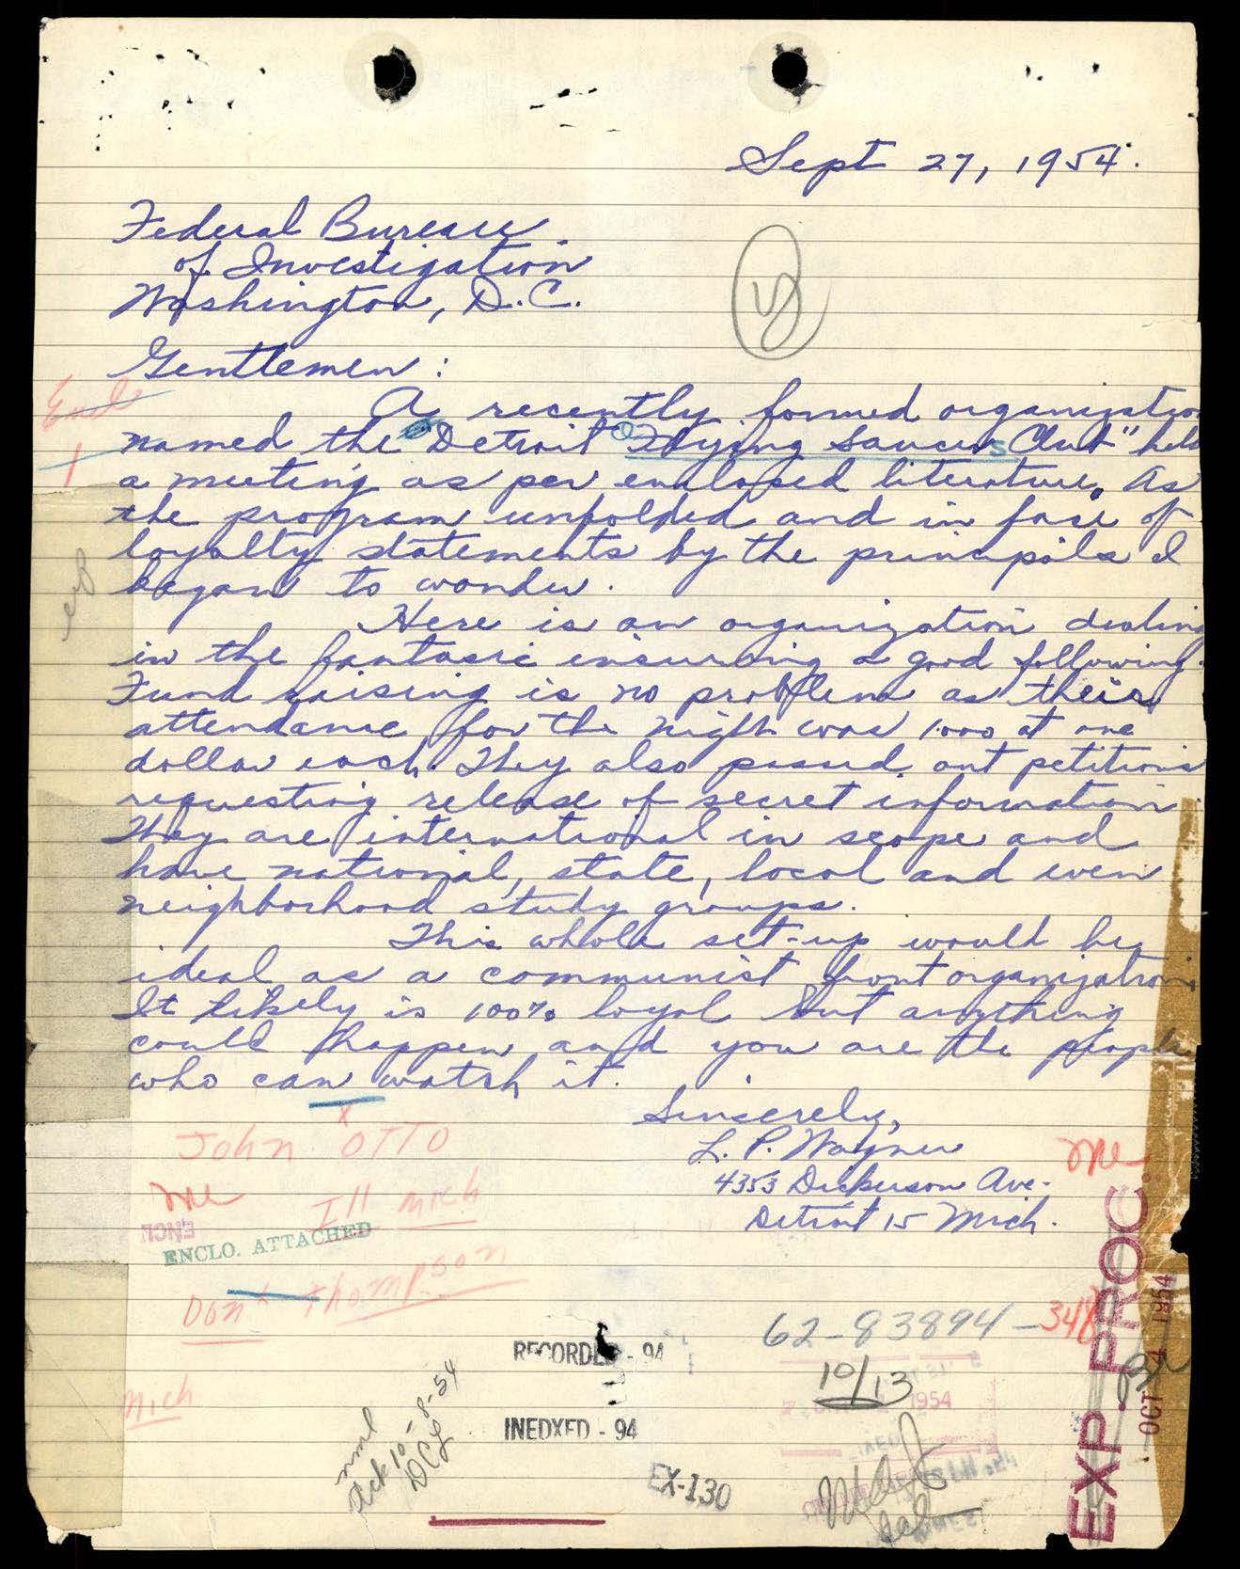 Sept 27, 1954.
Federal Bureau
of Investigation
Washington, D.C.
Gentlemen:
Encl
1
A recently formed organization
named the "Detroit Flying Saucers Club" held
a meeting as per enclosed literature. As
the program unfolded and in face of
loyalty statements by the principals I
began to wonder.
Here is an organization dealing
in the fantasic insuring a good following.
Fund raising is no problem as their
attendance for the night was 1000 at one
dollar each. They also passed out petitions
requesting release of secret information.
They are international in scope and
have national, state, local and even
neighborhood study groups.
This whole set-up would be
ideal as a communist front organization.
It likely is 100% loyal but anything
could happen and you are the people
who can watch it.
Sincerely,
L. P. Wagner
4353 Dickerson Ave.
Detroit 15 Mich.
John OTTO
Ill Mich
ENCL
ENCLO. ATTACHED
Don Thompson
Mich
62-83894-348
RECORDED - 94
10/13
1954
INEDXED - 94
EX-130
Ack 10-8-54
EXP. PROC.
OCT 4 1954